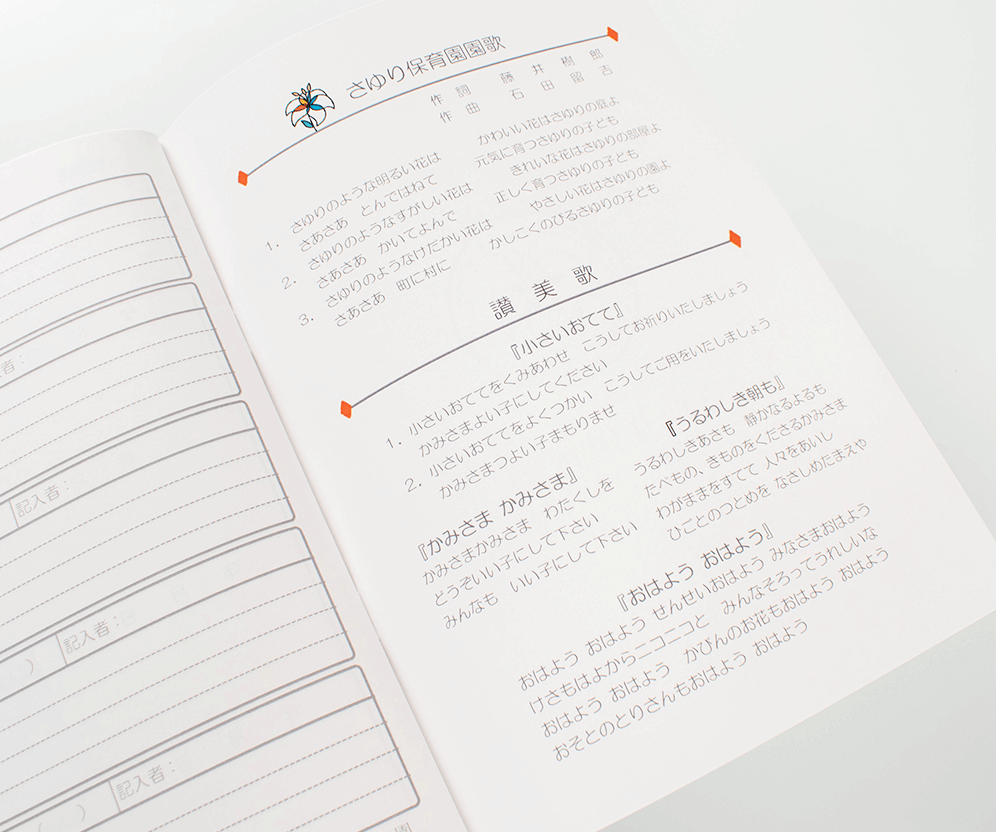 さゆり保育園園歌
作 詞 藤 井 樹 郎
作 曲 石 田 留 吉
1. さゆりのような明るい花は かわいい花はさゆりの庭よ
さあさあ とんではねて 元気に育つさゆりの子ども
2. さゆりのようなすがしい花は きれいな花はさゆりの部屋よ
さあさあ かいてよんで 正しく育つさゆりの子ども
3. さゆりのようなけだかい花は やさしい花はさゆりの園よ
さあさあ 町に村に かしこくのびるさゆりの子ども
讃 美 歌
『小さいおてて』
1. 小さいおててをくみあわせ こうしてお祈りいたしましょう
かみさまよい子にしてください
2. 小さいおててをよくつかい こうしてご用をいたしましょう
かみさまつよい子まもりませ
『かみさま かみさま』
かみさまかみさま わたくしを
どうぞいい子にして下さい
みんなも いい子にして下さい
『うるわしき朝も』
うるわしきあさも 静かなるよるも
たべもの、きものをくださるかみさま
わがままをすてて 人々をあいし
ひごとのつとめを なさしめたまえや
『おはよう おはよう』
おはよう おはよう せんせいおはよう みなさまおはよう
けさもはよからニコニコと みんなそろってうれしいな
おはよう おはよう かびんのお花もおはよう おはよう
おそとのとりさんもおはよう おはよう
者：
記入者：
記入者：
）
記入者：
（ ）
園